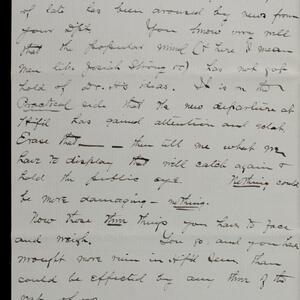 of late has been aroused by news from
your Dept. You know very well
that the popular mind (& here I mean
men like Josiah Strong &c) has not got
hold of Dr. H's ideas. It is on the
Practical side that the new departure at
Htfd has gained attention and
Erase that — — then tell me what we
have to display that will catch again &
hold the public eye. Nothing could
be more damaging — nothing.
Now those three things you have to face
and weigh. You go, and you have
wrought more ruin in Htfd Sem. than
could be effected by any three of the
rest of us